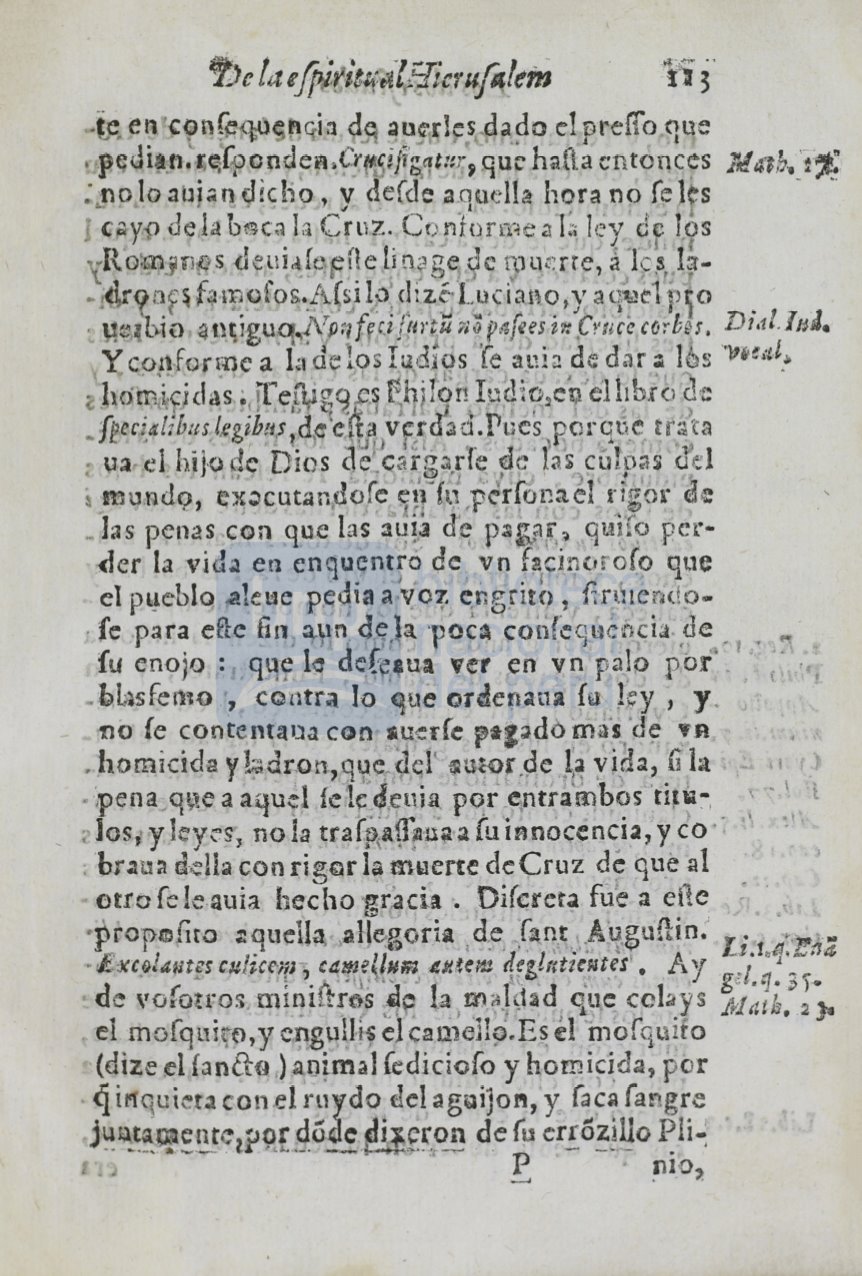 De la eſpiritual Hieruſalem 113
te en conſequencia de auerles dado el preſſo que
pedian. reſponden. Crucifigatur, que haſta entonces
Math. 27.
no lo auian dicho, y deſde aquella hora no ſe les
cayo de la boca la Cruz. Conforme a la ley de los
Romanos deuiaſe eſte linage de muerte, a los la-
drones famoſos. Aſsi lo dizē Luciano, y aquel pro
uerbio antiguo. Non feci furtū nō paſees in Cruce corbos.
Dial. Iud.
vocal.
Y conforme a la de los Iudios ſe auia de dar a los
homicidas. Teſtigo es Philon Iudio, en el libro de
ſpecialibus legibus, de eſta verdad. Pues porque trata
ua el hijo de Dios de cargarſe de las culpas del
mundo, executandoſe en ſu perſona el rigor de
las penas con que las auia de pagar, quiſo per-
der la vida en enquentro de vn facinoroſo que
el pueblo aleue pedia a voz en grito, ſiruiendo-
ſe para eſte fin aun de la poca conſequencia de
ſu enojo : que le deſeaua ver en vn palo por
blasfemo , contra lo que ordenaua ſu ley , y
no ſe contentaua con auerſe pagado mas de vn
homicida y ladron, que del autor de la vida, ſi la
pena que a aquel ſe le deuia por entrambos titu-
los, y leyes, no la traſpaſſaua a ſu innocencia, y co
braua della con rigor la muerte de Cruz de que al
otro ſe le auia hecho gracia . Diſcreta fue a eſte
propoſito aquella allegoria de ſant Auguſtin.
Li. 1. q. Euā
gel. q. 35.
Math. 23.
Excolantes culicem, camellum autem deglutientes . Ay
de voſotros miniſtros de la maldad que colays
el moſquito, y engullis el camello. Es el moſquito
(dize el ſancto ) animal ſedicioſo y homicida, por
q̃ inquieta con el ruydo del aguijon, y ſaca ſangre
juntamente, por dōde dixeron de ſu errōzillo Pli-
P nio,